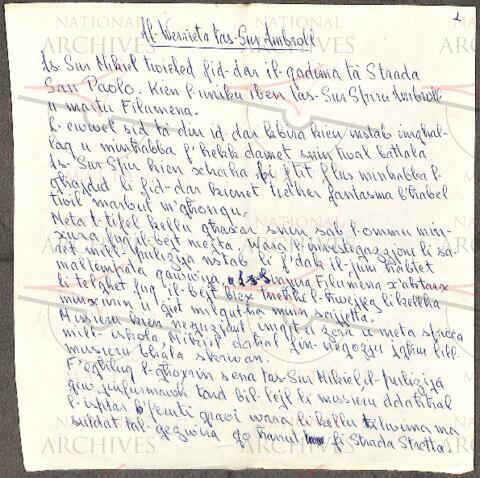 1
Il-Werrieta tas-Sur Ambroll
Is-Sur Mikiel twieled fid-dar il-qadima ta Strada
San Paolo. Kien l-uniku iben tas-Sur Spiru Ambroll
u martu Filumena.
L-ewwel sid ta din id-dar kbira kien instab imghal-
laq u minhabba f'hekk damet snin twal battala.
Is-Sur Spiru kien xtraha bi ftit flus minhabba l-
ghajdut li fid-dar kienet tidher fantasma b'habel
twil marbut m'ghonqu.
Meta t-tifel kellu ghaxar snin sab l-ommu min-
xura fuq il-bejt mejta. Waqt l-investigazzjoni li sa-
ret mill-pulizija nstab li f'dak il-jum habtet
maltempata qawwija Filumena x'aktarx
li telghet fuq il-bejt biex tnehhi l-hwejjeg li kellha
minxurin u giet milquta minn sajjetta.
Missieru kien negozjant ungit u zoru u meta spicca
mill-iskola, Mikiel dahal fin-negozju ighin lill-
missieru bhala skrivan.
F'eghluq l-ghoxrin sena tas-Sur Mikiel, il-pulizija
gew jinfurmawh tard bil-lejl li missieru ddahhal
l-isptar b'feriti gravi wara li kellu ma
suldat tal- go fi Strada Stretta.
NATIONAL ARCHIVES